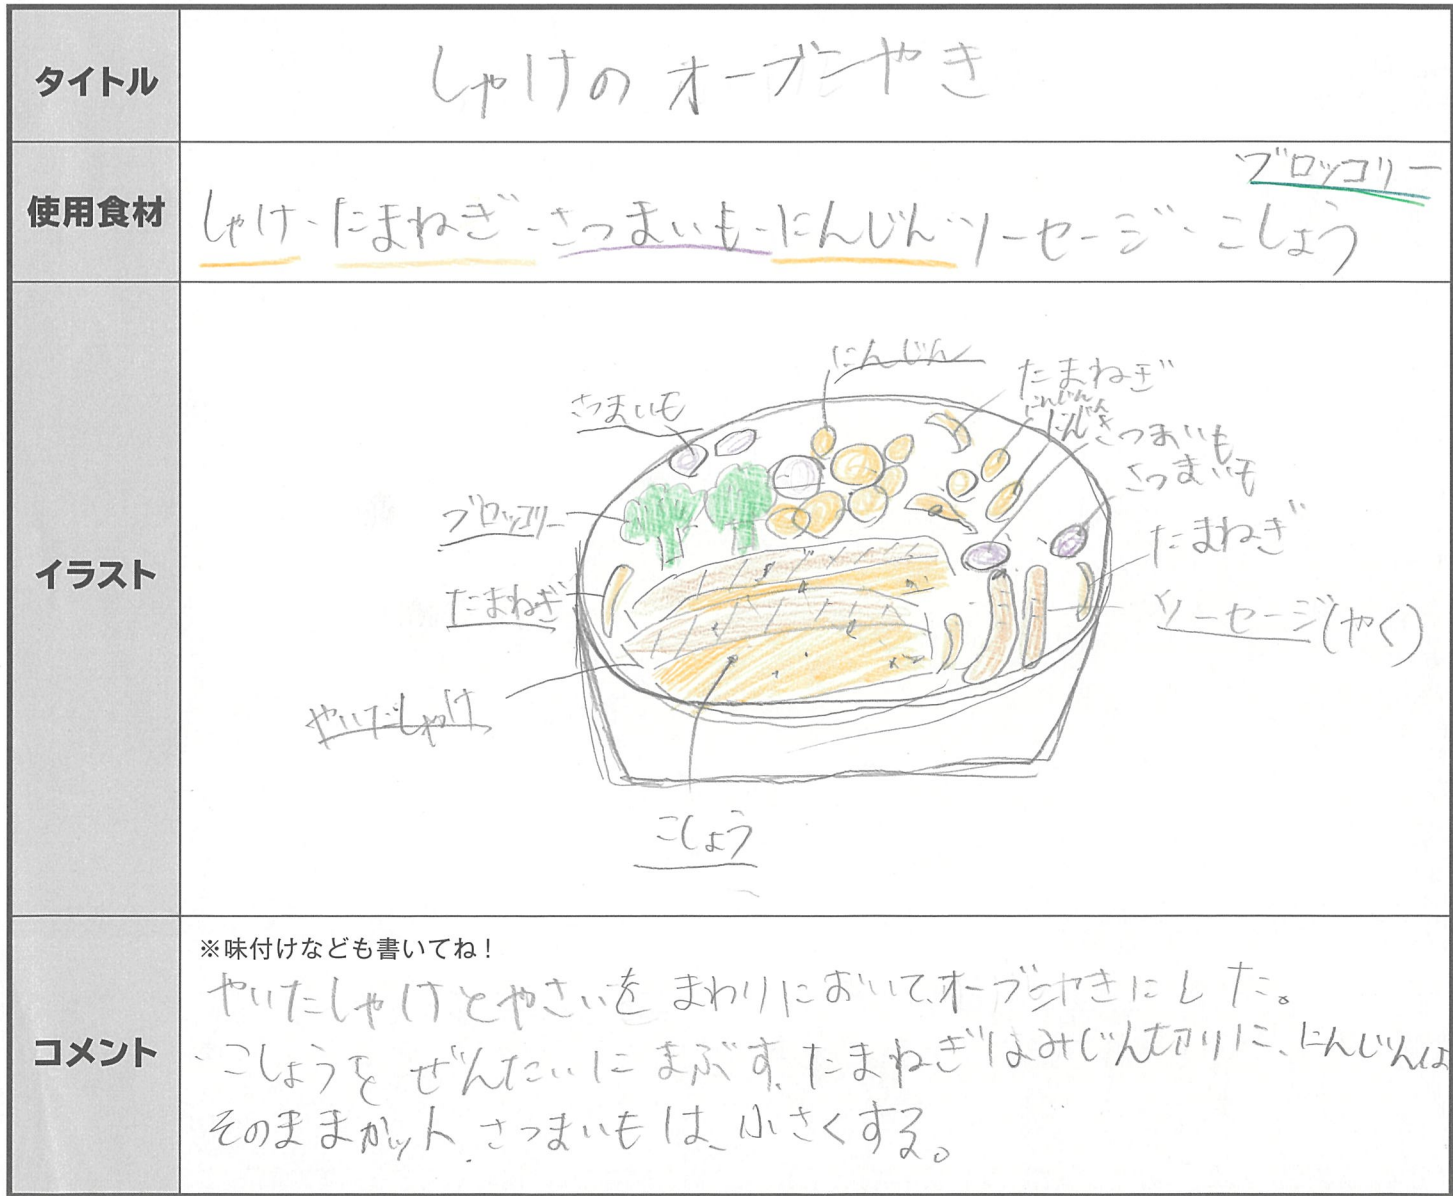 タイトル
しゃけのオーブンやき
使用食材
ブロッコリー
しゃけ・たまねぎ・さつまいも・にんじん・ソーセージ・こしょう
イラスト
にんじん
たまねぎ
さつまいも
にんじん
にんじん
さつまいも
さつまいも
ブロッコリー
たまねぎ
たまねぎ
ソーセージ(やく)
やいたしゃけ
こしょう
コメント
※味付けなども書いてね!
やいたしゃけとやさいをまわりにおいて、オーブンやきにした。
・こしょうをぜんたいにまぶす、たまねぎはみじん切りに、にんじんは
そのままカット、さつまいもは、小さくする。